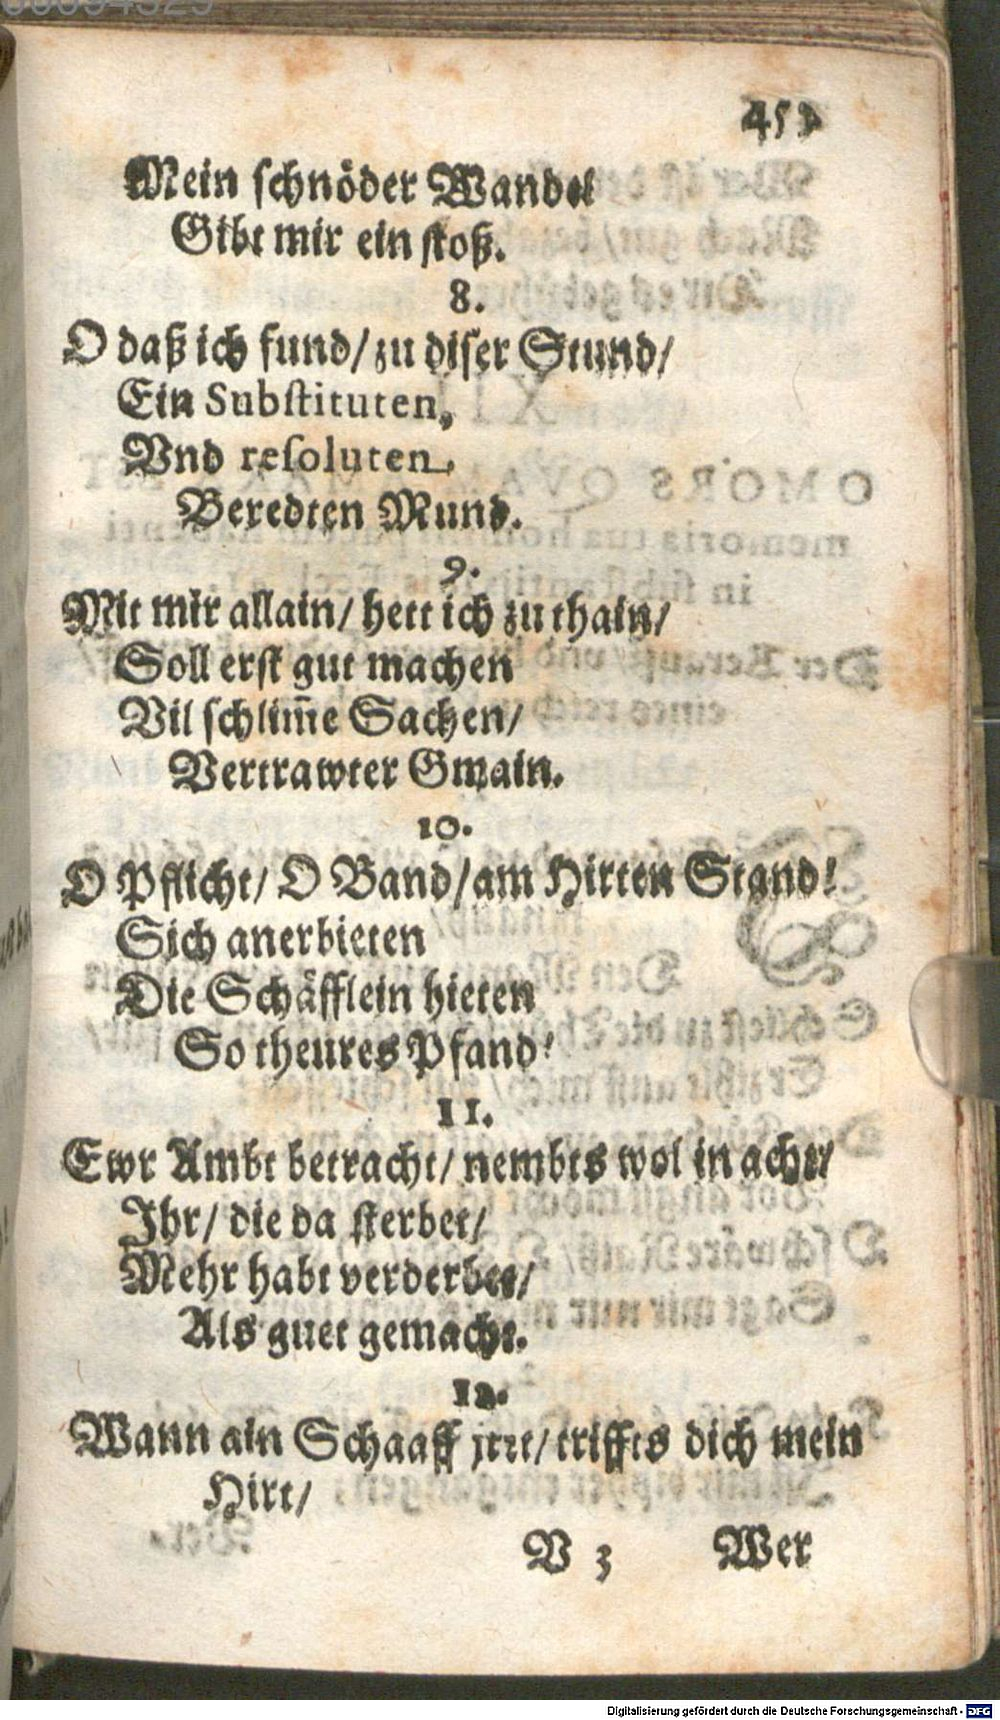 Mein schnöder Wandel
Gibt mir ein stoß.
8.
O daß ich fund/ zu diser Stund/
Ein Substituten,
Vnd resoluten,
Beredten Mund.
9.
Mit mir allain/ hett ich zu thain/
Soll erst gut machen
Vil schlim̄e Sachen/
Vertrawter Gmain.
10.
O Pflicht/ O Band/ am Hirten Stand!
Sich anerbieten
Die Schäfflein hieten
So theures Pfand!
11.
Ewr Ambt betracht/ nembts wol in acht/
Ihr/ die da sterbet/
Mehr habt verderbet/
Als guet gemacht.
12.
Wann ain Schaaff jrrt/ triffts dich mein
Hirt/
V 3 Wer
Digitalisierung gefördert durch die Deutsche Forschungsgemeinschaft - DFG